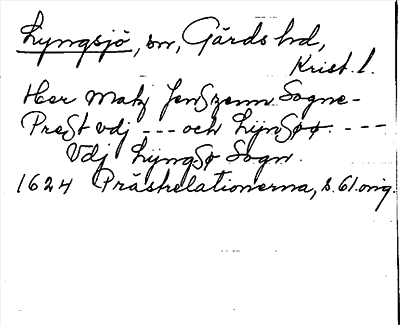 Lyngsjö, sn, Gärds hd,
Krist. l.
Her Matz Jenszenn Sogne-
Prest vdj --- och Lÿnsøø. ---
Vdj Lÿngsø Sogn.
1624 Prästrelationerna, s. 61. orig.